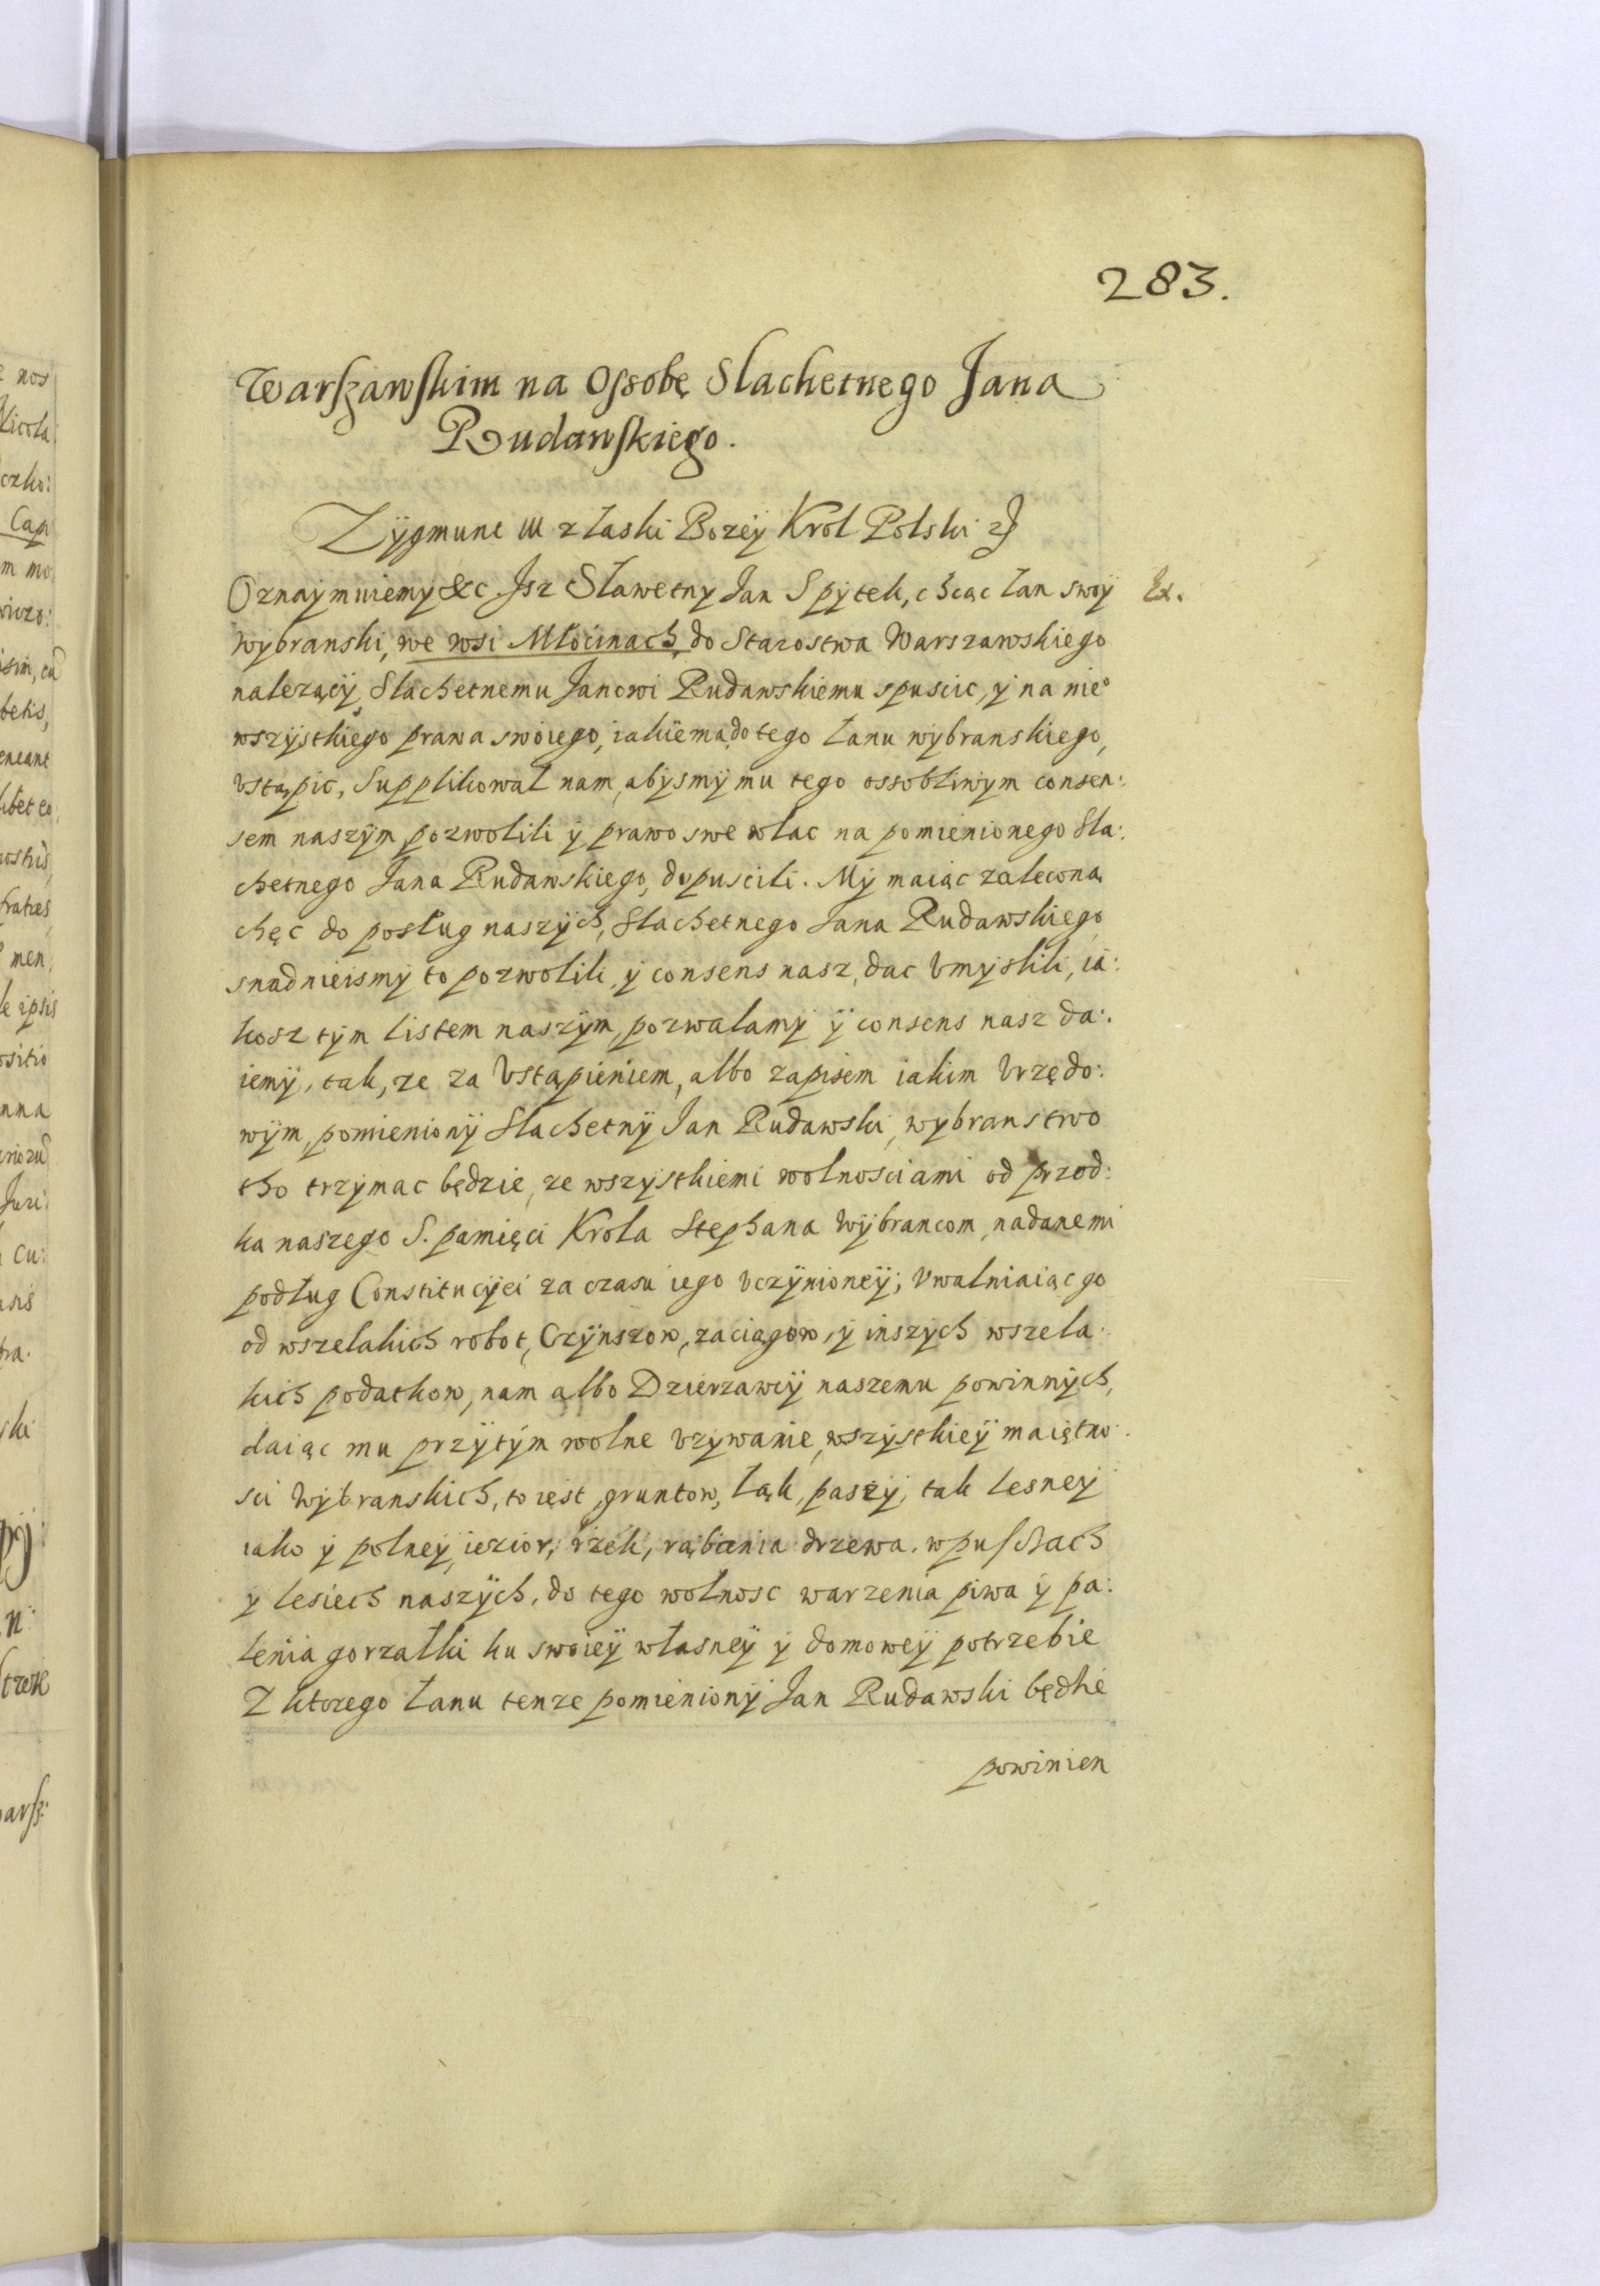 283.
Warszawskim na Ossobę Slachetnego Jana
Rudawskiego.
Zÿgmunt III z łaski Bozeÿ Krol Polski
Oznaÿmuiemy &c. Jsz Sławetny Jan Spÿtek, chcąc łan swoÿ
Ex.
wÿbranski, we wsi Młocinach, do Starostwa Warszawskiego
nalezącÿ, Slachetnemu Janowi Rudawskiemu spuscic, ÿ na nie°
wszÿstkiego prawa swoiego, iakie ma do tego łanu wÿbranskiego,
Vstąpic, Supplikował nam, abÿsmÿ mu tego ossobliwym consen:
sem naszÿm pozwolili ÿ prawo swe wlac na pomienionego Sla:
chetnego Jana Rudawskiego, dopuscili. Mÿ maiąc zaleconą
chęc do posług naszÿch, Slachetnego Jana Rudawskiego
snadnieismÿ to pozwolili, ÿ consens nasz, dac Vmÿslili, ia:
kosz tÿm listem naszÿm, pozwalamÿ ÿ consens nasz da:
iemÿ, tak, ze za Vstąpieniem, albo zapisem iakim Vrzędo:
wÿm, pomienionÿ Slachetnÿ Jan Rudawski, wybranstwo
tho trzÿmac będzie, ze wszÿstkiemi wolnosciami od przod:
ka naszego S. pamięci Krola Stephana Wÿbrancom, nadanemi
podług Constitucÿei za czasu iego Vczÿnioneÿ; Vwalniaiąc go
od wszelakich robot, Czÿnszow, zaciągow, ÿ inszÿch wszela:
kich podatkow, nam albo Dzierzawcÿ naszemu powinnÿch,
daiąc mu przÿtÿm wolne Vzÿwanie, wszÿstkieÿ maiętno:
sci Wÿbranskich, to iest, gruntow, łąk, paszÿ, tak lesneÿ
iako ÿ polneÿ, iezior, rzek, rąbania drzewa. w puszczach
ÿ lesiech naszÿch, do tego wolnosc warzenia piwa ÿ pa:
lenia gorzałki ku swoieÿ własneÿ ÿ domoweÿ potrzebie
Z ktorego łanu tenze pomienionÿ Jan Rudawski będzie
powinien